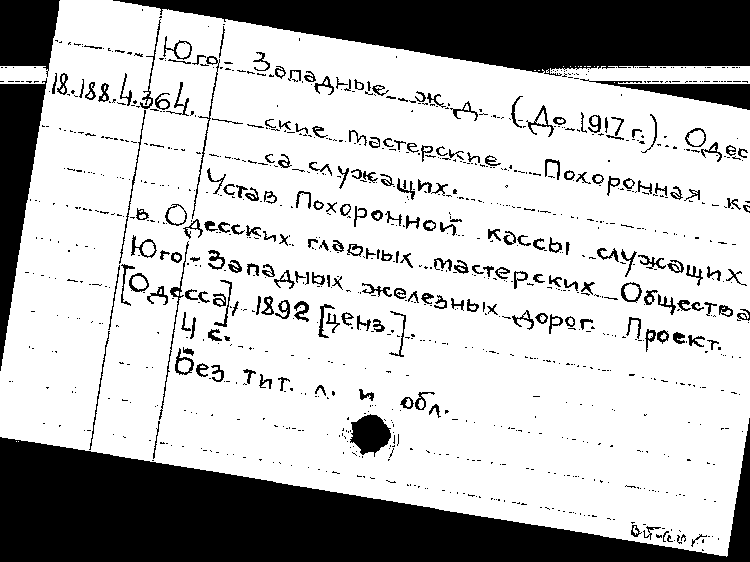 Юго-Западные ж.д. (До 1917 г.). Одес
18.188.4.364.
ские мастерские. Похоронная ка
са служащих.
Устав Похоронной кассы служащих
в Одесских главных мастерских Общества
Юго-Западных железных дорог. Проект.
[Одесса], 1892 [ценз.].
4 с.
Без тит. л. и обл.